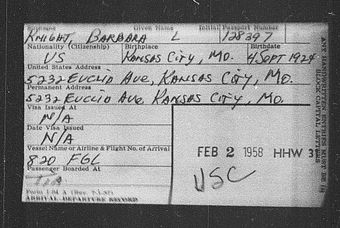 Surname Given Name Initial Passport Number
KNIGHT, BARBARA L 128397
Nationality (Citizenship) Birthplace
US KANSAS CITY, MO. 4 SEPT 1924
United States Address
5232 EUCLID AVE, KANSAS CITY, MO.
Permanent Address
5232 EUCLID AVE, KANSAS CITY, MO.
Visa Issued At
N/A
Date Visa Issued
N/A
Vessel Name or Airline & Flight No. of Arrival
820 FGL
Passenger Boarded At
FEB 2 1958 HHW 3
USC
ARRIVAL-DEPARTURE RECORD
ANY HANDWRITTEN ENTRIES MUST BE IN
BLOCK CAPITAL LETTERS